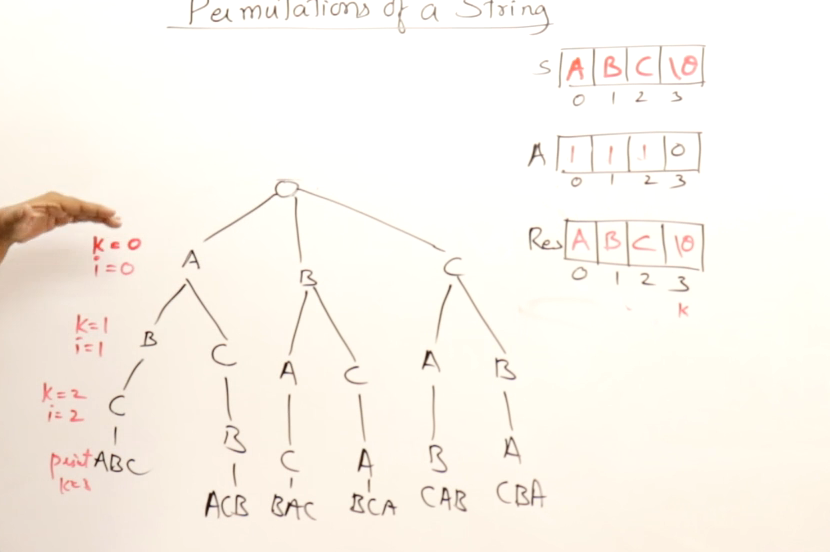 Permutations of a String
S A B C \0
0 1 2 3
A 1 1 1 0
0 1 2 3
Res A B C \0
0 1 2 3
k
k=0
i=0
A B C
k=1
i=1
B C A C A B
k=2
i=2
C B C A B A
print ABC
ACB BAC BCA CAB CBA